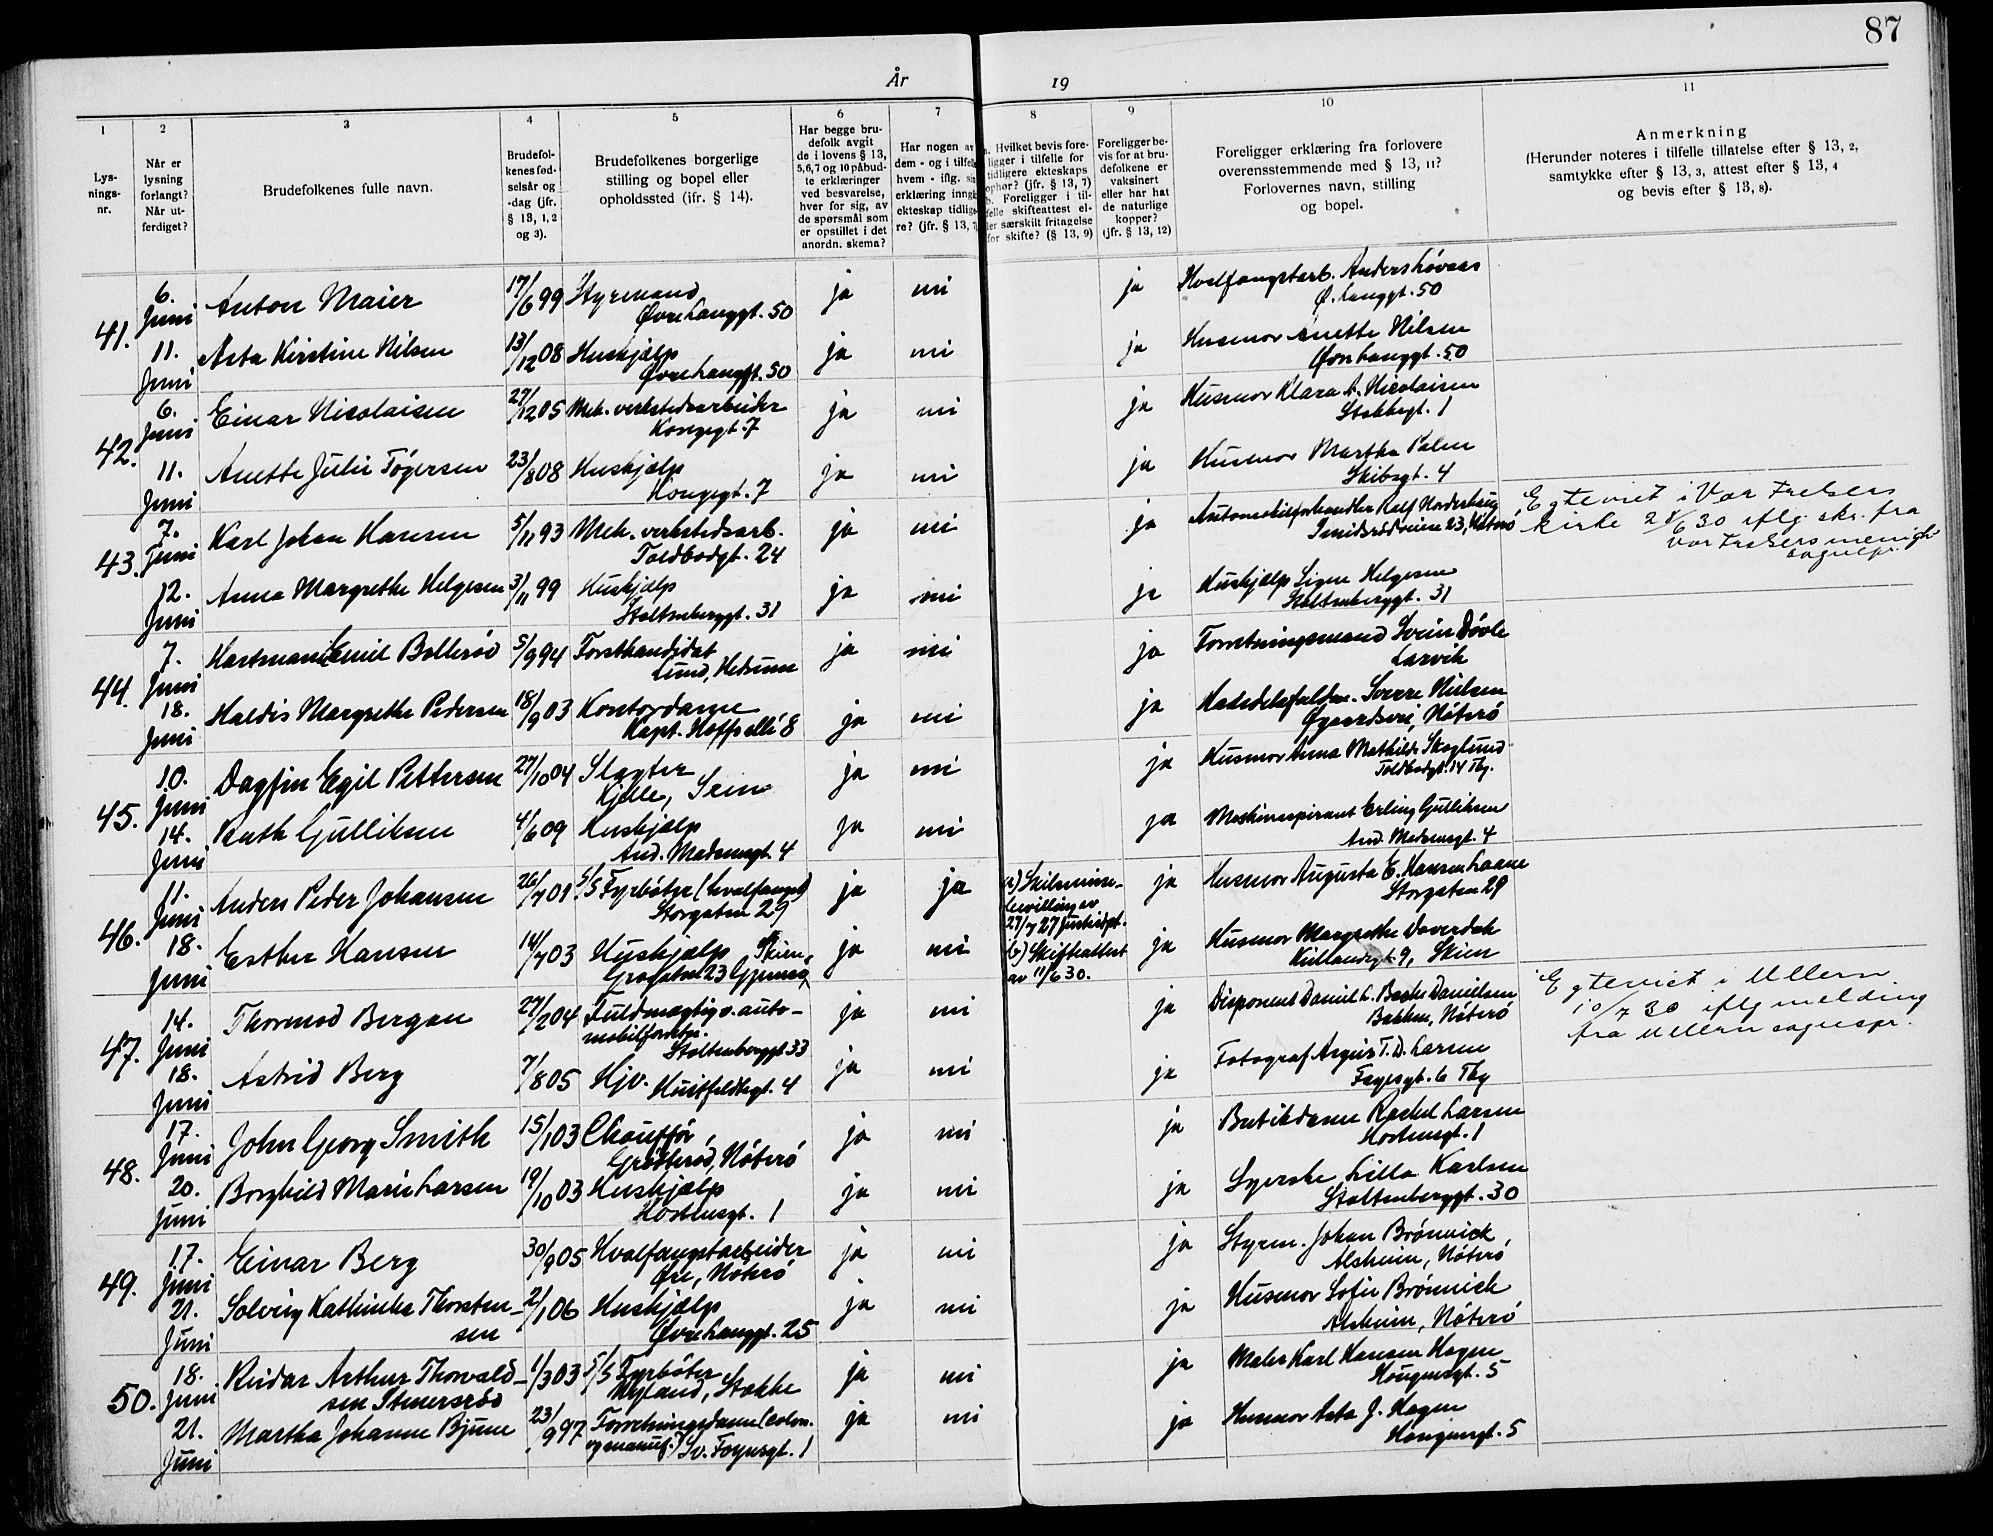 87
År 19
1 2 3 4 5 6 7 8 9 10 11
Lys-
nings-
nr.
Når er
lysning
forlangt?
Når ut-
ferdiget?
Brudefolkenes fulle navn.
Brudefol-
kenes fød-
selsår og
-dag (jfr.
§ 13, 1, 2
og 3).
Brudefolkenes borgerlige
stilling og bopel eller
opholdssted (ifr. § 14).
Har begge bru-
defolk avgit
de i lovens § 13,
5,6,7 og 10 påbud-
te erklæringer
ved besvarelse,
hver for sig, av
de spørsmål som
er opstillet i det
anordn. skema?
Har nogen av
dem - og i tilfelle
hvem - iflg. sin
erklæring inngå
ekteskap tidlige-
re? (jfr. § 13, 7)
a. Hvilket bevis fore-
ligger i tilfelle for
tidligere ekteskaps
ophør? (jfr. § 13, 7)
b. Foreligger i til-
felle skifteattest el-
ler særskilt fritagelse
for skifte? (§ 13, 9)
Foreligger be-
vis for at bru-
defolkene er
vaksinert
eller har hat
de naturlige
kopper?
(jfr. § 13, 12)
Foreligger erklæring fra forlovere
overensstemmende med § 13, 11?
Forlovernes navn, stilling
og bopel.
Anmerkning
(Herunder noteres i tilfelle tillatelse efter § 13, 2,
samtykke efter § 13, 3, attest efter § 13, 4
og bevis efter § 13, 8).
41. 6. Juni Anton Maier 17/6 99 Styrmand ja nei ja Hvalfangstarb. Anders
Øvre Langgt. 50 Ø. Langgt. 50
11. Juni Asta Kirstine Nilsen 13/12 08 Hushjælp ja nei ja Husmor Anette Nilsen
Øvre Langgt. 50 Øvre Langgt. 50
42. 6. Juni Einar Nicolaisen 27/12 05 Mek. verkstedsarbeider ja nei ja Husmor Klara A. Nicolaisen
Kongegt. 7 Stokkegt. 1
11. Juni Anette Julie Tögersen 23/8 08 Hushjælp ja nei ja Husmor Martha Palm
Kongegt. 7 Skibsgt. 4
43. 7. Juni Karl Johan Hansen 5/11 93 Mek. verkstedsarb. ja nei ja Automobilforhandler Rolf Norderhaug
Toldbodgt. 24 Smidsrødveien 23, Nøterö
Egteviet i Vor Frelsers
kirke 28/6 30 iflg. skr. fra
Vor Frelsers menigh.
sognepr.
12. Juni Anna Margrethe Helgesen 3/11 99 Hushjælp ja nei ja Hushjælp Signe Helgesen
Stoltenberggt. 31 Stoltenberggt. 31
44. 7. Juni Hartmann Emil Bollerød 5/9 94 Forstkandidat ja nei ja Forretningsmand Svein Dövle
Lund, Hedrum Larvik
18. Juni Haldis Margrethe Pedersen 18/9 03 Kontordame ja nei ja Sverre Nielsen
Kapt. Hoffs allé 8 Øgaardsvei, Nöterö
45. 10. Juni Dagfin Egil Pettersen 27/10 04 Slagter ja nei ja Husmor Anna Mathilde Skoglund
Kjelle, Sem Toldbodgt. 14 Tbg.
14. Juni Ruth Gulliksen 4/6 09 Hushjælp ja nei ja Maskinaspirant Erling Gulliksen
And. Madsensgt. 4 And. Madsensgt. 4
46. 11. Juni Anders Peder Johansen 26/7 01 S/S Fyrböter (hvalfangst) ja ja a) Skilsmisse-
bevilling av
27/7 27 Justisdpt.
ja Husmor Augusta E. Hansen Laane
Storgaten 29 Storgaten 29
18. Juni Esther Hansen 14/7 03 Hushjælp Skien, ja nei b) Skifteattest
av 11/6 30.
ja Husmor Margrethe Doverdak
23 Gjemsø 9, Skien
47. 14. Juni Thormod Bergan 27/2 04 Fuldmægtig v. auto- ja nei ja Disponent Daniel L. Bache Danielsen
mobilforretn.
Stoltenberggt 33 Bakken, Nöterö
Egteviet i Ullern
10/7 30 iflg melding
fra Ullern sognepr.
18. Juni Astrid Berg 7/8 05 Hjv. ja nei ja Fotograf Argus T. D. Larsen
Huitfeldtsgt. 4 Tbg
48. 17. Juni John Georg Smith 15/1 03 Chaufför ja nei ja Butikdame Rachel Larsen
Grötteröd, Nöterö Hostensgt. 1
20. Juni Borghild Marie Larsen 19/10 03 Hushjælp ja nei ja Syerske Lilla Karlsen
Hostensgt. 1 Stoltenberggt. 30
49. 17. Juni Einar Berg 30/9 05 Hvalfangstarbeider ja nei ja Styrm. Johan Brönnick
Øre, Nöterö Alsheim, Nöterö
21. Juni Solveig Kathinka Thorsten- 2/1 06 Hushjælp ja nei ja Husmor Sofie Brönnick
sen Øvre Langgt. 25 Alsheim, Nöterö
50. 18. Juni Reidar Arthur Thorvald- 1/3 03 S/S Fyrböter ja nei ja Maler Karl Hansen Hagen
sen Stenersröd Nyland, Stokke Kongensgt. 5
21. Juni Martha Johanne Bjune 23/9 97 Forretningsdame (colon. ja nei ja Husmor Asta J. Hagen
og manuf.) Sv. Foynsgt. 1 Kongensgt. 5